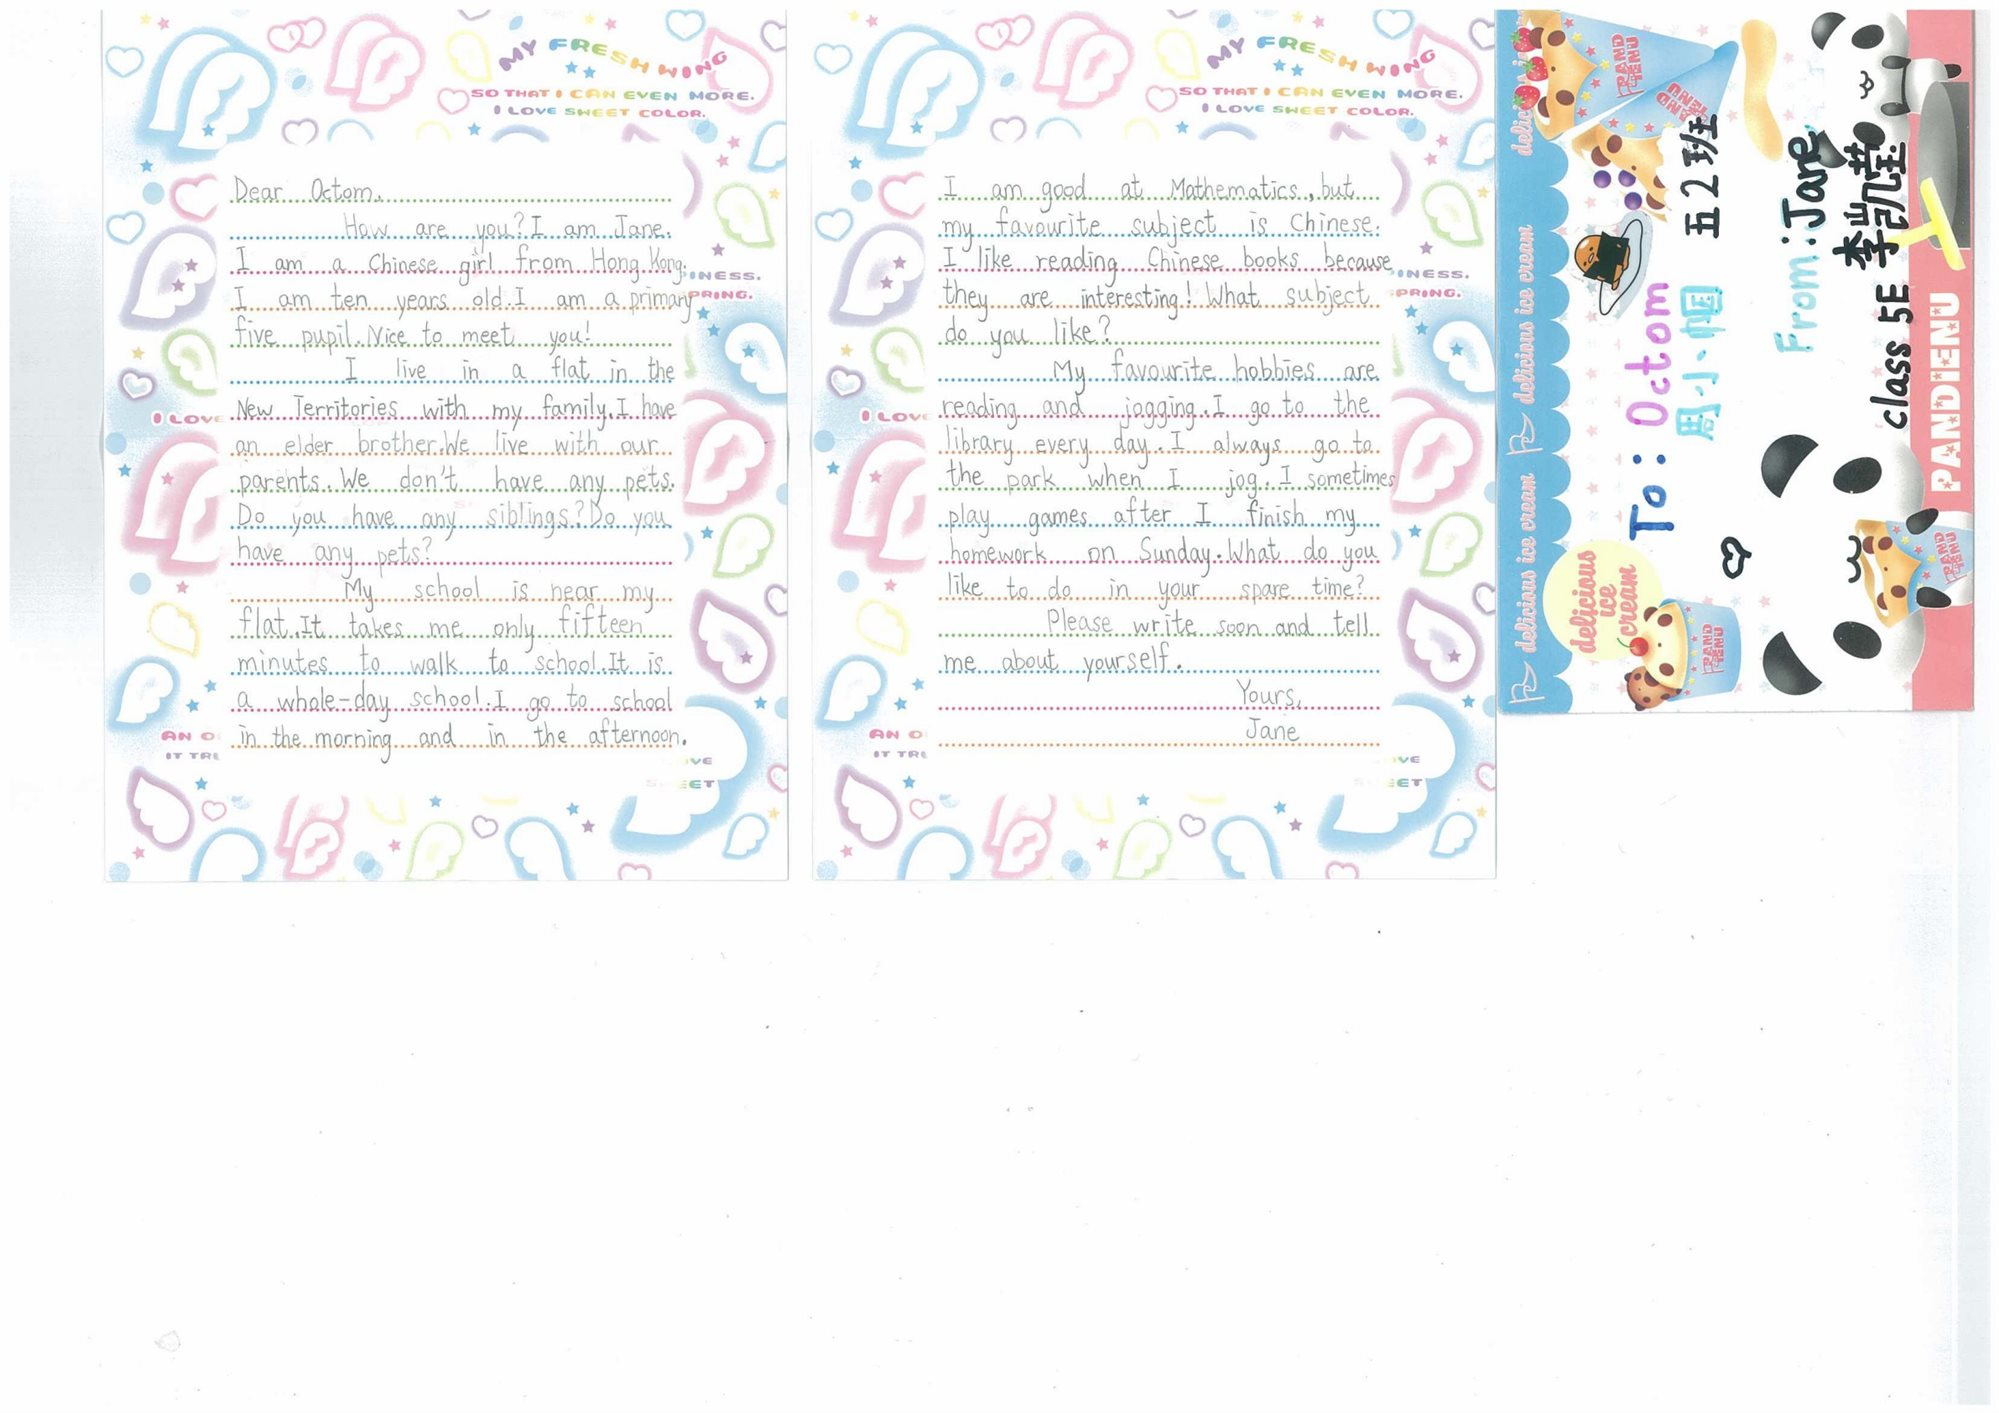 MY FRESH WING
SO THAT I CAN EVEN MORE.
I LOVE SWEET COLOR.
Dear Octom,
How are you? I am Jane.
I am a Chinese girl from Hong Kong.
I am ten years old. I am a primary
five pupil. Nice to meet you!
I live in a flat in the
New Territories with my family. I have
an elder brother. We live with our
parents. We don't have any pets.
Do you have any siblings? Do you
have any pets?
My school is near my
flat. It takes me only fifteen
minutes to walk to school. It is
a whole-day school. I go to school
in the morning and in the afternoon.
INESS.
PRING.
I LOVE
AN O
IT TRU
OVE
SWEET
MY FRESH WING
SO THAT I CAN EVEN MORE.
I LOVE SWEET COLOR.
I am good at Mathematics, but
my favourite subject is Chinese.
I like reading Chinese books because
they are interesting! What subject
do you like?
My favourite hobbies are
reading and jogging. I go to the
library every day. I always go to
the park when I jog. I sometimes
play games after I finish my
homework on Sunday. What do you
like to do in your spare time?
Please write soon and tell
me about yourself.
Yours,
Jane
INESS.
PRING.
I LOVE
AN O
IT TRU
OVE
SWEET
delicious ice cream delicious ice cream delic
delicious
ice
cream
PAND
IENU
PAND
IENU
PAND
IENU
To: Octom 五2班
周小帼
From: Jane
李凯莹
class 5E
PAND
IENU
PANDIENU